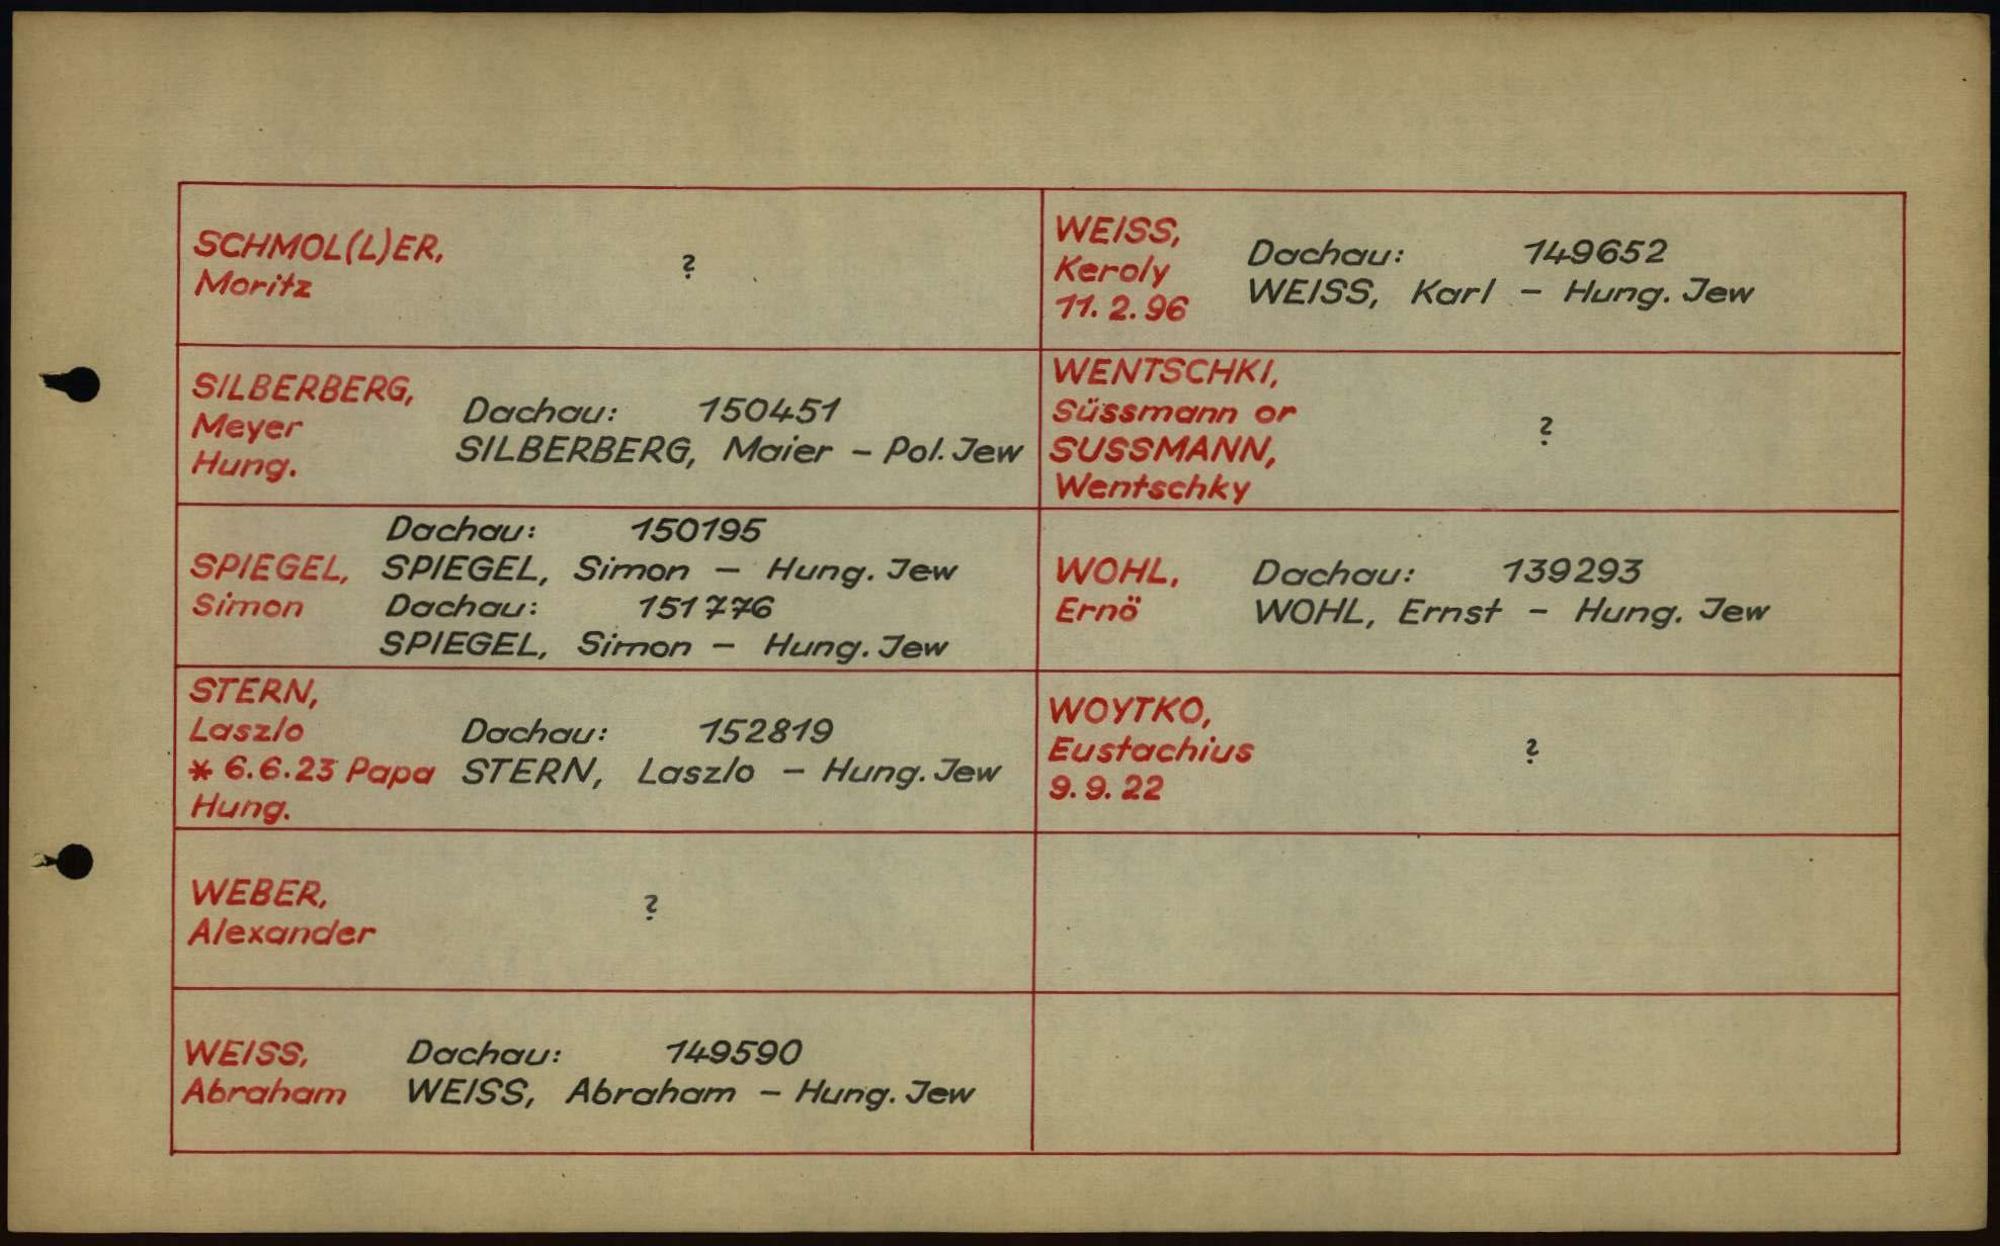 SCHMOL(L)ER,
Moritz
?
SILBERBERG,
Meyer
Hung.
Dachau: 150451
SILBERBERG, Maier – Pol. Jew
SPIEGEL,
Simon
Dachau: 150195
SPIEGEL, Simon – Hung. Jew
Dachau: 151776
SPIEGEL, Simon – Hung. Jew
STERN,
Laszlo
* 6.6.23 Papa
Hung.
Dachau: 152819
STERN, Laszlo – Hung. Jew
WEBER,
Alexander
?
WEISS,
Abraham
Dachau: 149590
WEISS, Abraham – Hung. Jew
WEISS,
Keroly
11. 2. 96
Dachau: 149652
WEISS, Karl – Hung. Jew
WENTSCHKI,
Süssmann or
SUSSMANN,
Wentschky
?
WOHL,
Ernö
Dachau: 139293
WOHL, Ernst – Hung. Jew
WOYTKO,
Eustachius
9. 9. 22
?